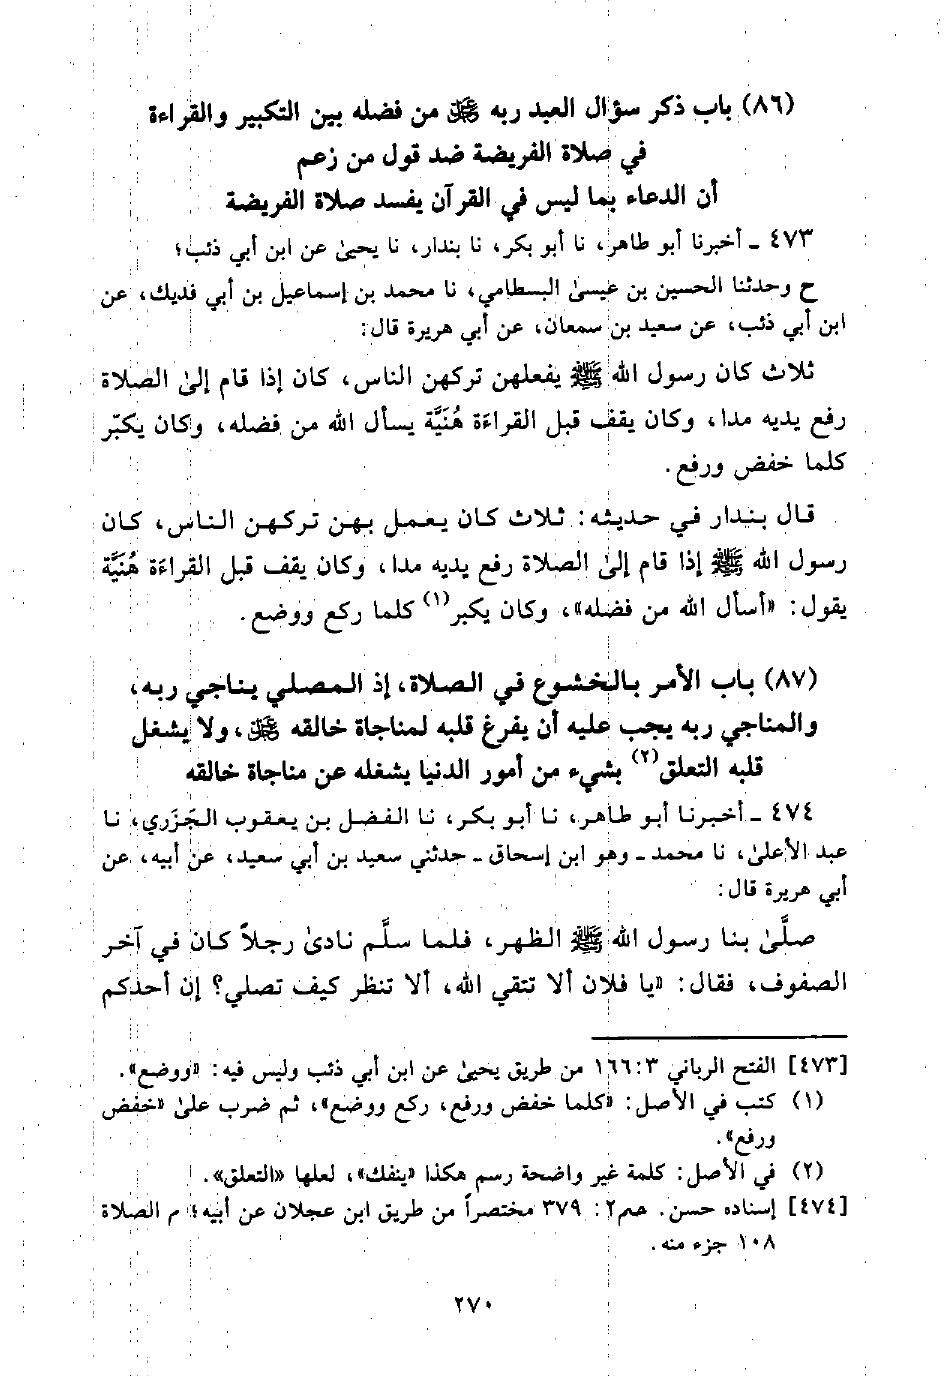 (٨٦) باب ذكر سؤال العبد ربه ﷻ من فضله بين التكبير والقراءة
في صلاة الفريضة ضد قول من زعم
أن الدعاء بما ليس في القرآن يفسد صلاة الفريضة
٤٧٣ ـ أخبرنا أبو طاهر، نا أبو بكر، نا بندار، نا يحيىٰ عن ابن أبي ذئب؛
ح وحدثنا الحسين بن عيسىٰ البسطامي، نا محمد بن إسماعيل بن أبي فديك، عن
ابن أبي ذئب، عن سعيد بن سمعان، عن أبي هريرة قال:
ثلاث كان رسول الله ﷺ يفعلهن تركهن الناس، كان إذا قام إلىٰ الصلاة
رفع يديه مدا، وكان يقف قبل القراءَة هُنَيَّة يسأل الله من فضله، وكان يكبّر
كلما خفض ورفع.
قال بندار في حديثه: ثلاث كان يعمل بهن تركهن الناس، كان
رسول الله ﷺ إذا قام إلىٰ الصلاة رفع يديه مدا، وكان يقف قبل القراءَة هُنَيَّة
يقول: «أسأل الله من فضله»، وكان يكبر(١) كلما ركع ووضع.
(٨٧) باب الأمر بالخشوع في الصلاة، إذ المصلي يناجي ربه،
والمناجي ربه يجب عليه أن يفرغ قلبه لمناجاة خالقه ﷻ، ولا يشغل
قلبه التعلق(٢) بشيء من أمور الدنيا يشغله عن مناجاة خالقه
٤٧٤ ـ أخبرنا أبو طاهر، نا أبو بكر، نا الفضل بن يعقوب الجَزَري، نا
عبد الأعلىٰ، نا محمد ـ وهو ابن إسحاق ـ حدثني سعيد بن أبي سعيد، عن أبيه، عن
أبي هريرة قال:
صلَّىٰ بنا رسول الله ﷺ الظهر، فلما سلَّم نادىٰ رجلاً كان في آخر
الصفوف، فقال: «يا فلان ألا تتقي الله، ألا تنظر كيف تصلي؟ إن أحدكم
[٤٧٣] الفتح الرباني ٣: ١٦٦ من طريق يحيىٰ عن ابن أبي ذئب وليس فيه: «ووضع».
(١) كتب في الأصل: «كلما خفض ورفع، ركع ووضع»، ثم ضرب علىٰ «خفض
ورفع».
(٢) في الأصل: كلمة غير واضحة رسم هكذا «ينفك»، لعلها «التعلق».
[٤٧٤] إسناده حسن. حم٢: ٣٧٩ مختصراً من طريق ابن عجلان عن أبيه؛ م الصلاة
١٠٨ جزء منه.
٢٧٠